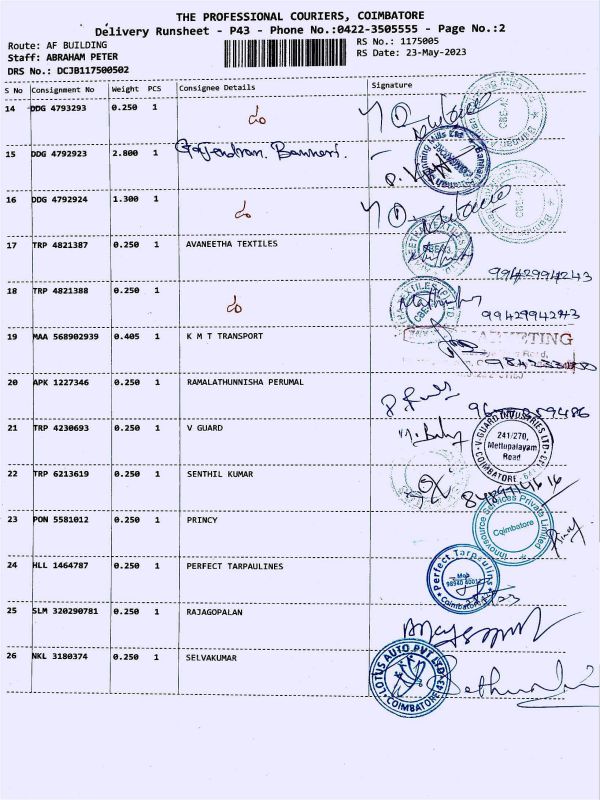 THE PROFESSIONAL COURIERS, COIMBATORE
Delivery Runsheet - P43 - Phone No.:0422-3505555 - Page No.:2
Route: AF BUILDING
RS No.: 1175005
Staff: ABRAHAM PETER
RS Date: 23-May-2023
DRS No.: DCJB117500502
S No Consignment No Weight PCS Consignee Details Signature
14 DDG 4793293 0.250 1
15 DDG 4792923 2.800 1
16 DDG 4792924 1.300 1
17 TRP 4821387 0.250 1 AVANEETHA TEXTILES
9942994243
18 TRP 4821388 0.250 1
9942994243
19 MAA 568902939 0.405 1 K M T TRANSPORT
20 APK 1227346 0.250 1 RAMALATHUNNISHA PERUMAL
21 TRP 4230693 0.250 1 V GUARD
V-GUARD INDUSTRIES LTD
241/270,
Mettupalayam
Road
COIMBATORE
22 TRP 6213619 0.250 1 SENTHIL KUMAR
23 PON 5581012 0.250 1 PRINCY
Innovsource Services Private Limited
Coimbatore
Princy
24 HLL 1464787 0.250 1 PERFECT TARPAULINES
Perfect Tarpaulins
Mob
Coimbatore
25 SLM 320290781 0.250 1 RAJAGOPALAN
26 NKL 3180374 0.250 1 SELVAKUMAR
LOTUS AUTO PVT LTD
COIMBATORE 43